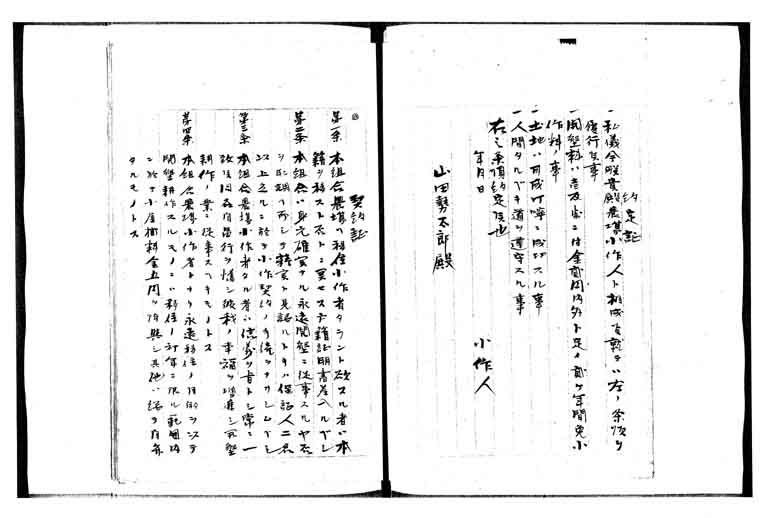 約定証
一 私儀今般貴殿農場小作人ト相成候就テハ左ノ条項ヲ
履行候事
一 開墾料ハ壱反歩ニ付金貳円内外ト定ノ貳ヶ年間免小
作料ノ事
一 土地ハ可成丁寧ニ成功スル事
一 人間タルベキ道ヲ遵守スル事
右之条項約定候也
年 月 日
小作人
山田勢太郎殿
契約証
第一条 本組合農場ヘ移住小作者タラント欲スル者ハ本
籍ヲ移ストトニ戸籍証明書差入ルベシ
第二条 本組合ハ身元確実ナル永遠開墾ニ従事スルヤ否
ヲ調ヘ而シテ確実ト見認ルトキハ保証人二名
以上立ルニ於テ小作契約ノ手續ヲナサシムベシ
第三条 本組合農場小作者タル者ハ信義ヲ旨トシ常ニ一
致協同自営行ヲ慎シ彼我ノ幸福ヲ増進シ開墾
耕作ノ業ニ従事スヘキモノトス
第四条 本組合農場小作者トナリ永遠移住ノ目的ヲ以テ
開墾耕作スルモノニハ移住ノ初年ニ限ル範囲内
ニ於テ小屋掛料金五円ヲ給與シ其他ハ総テ自弁
タルモノトス